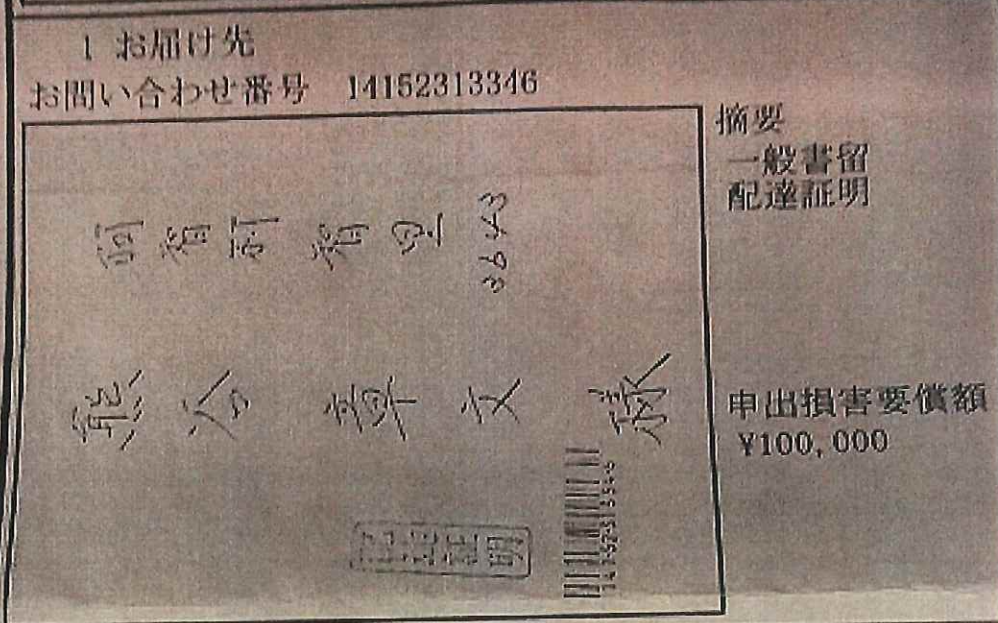 1 お届け先
お問い合わせ番号 14152313346
摘要
一般書留
配達証明
熊谷章文様
申出損害要償額
¥100,000
141-52-31334-6
配達証明